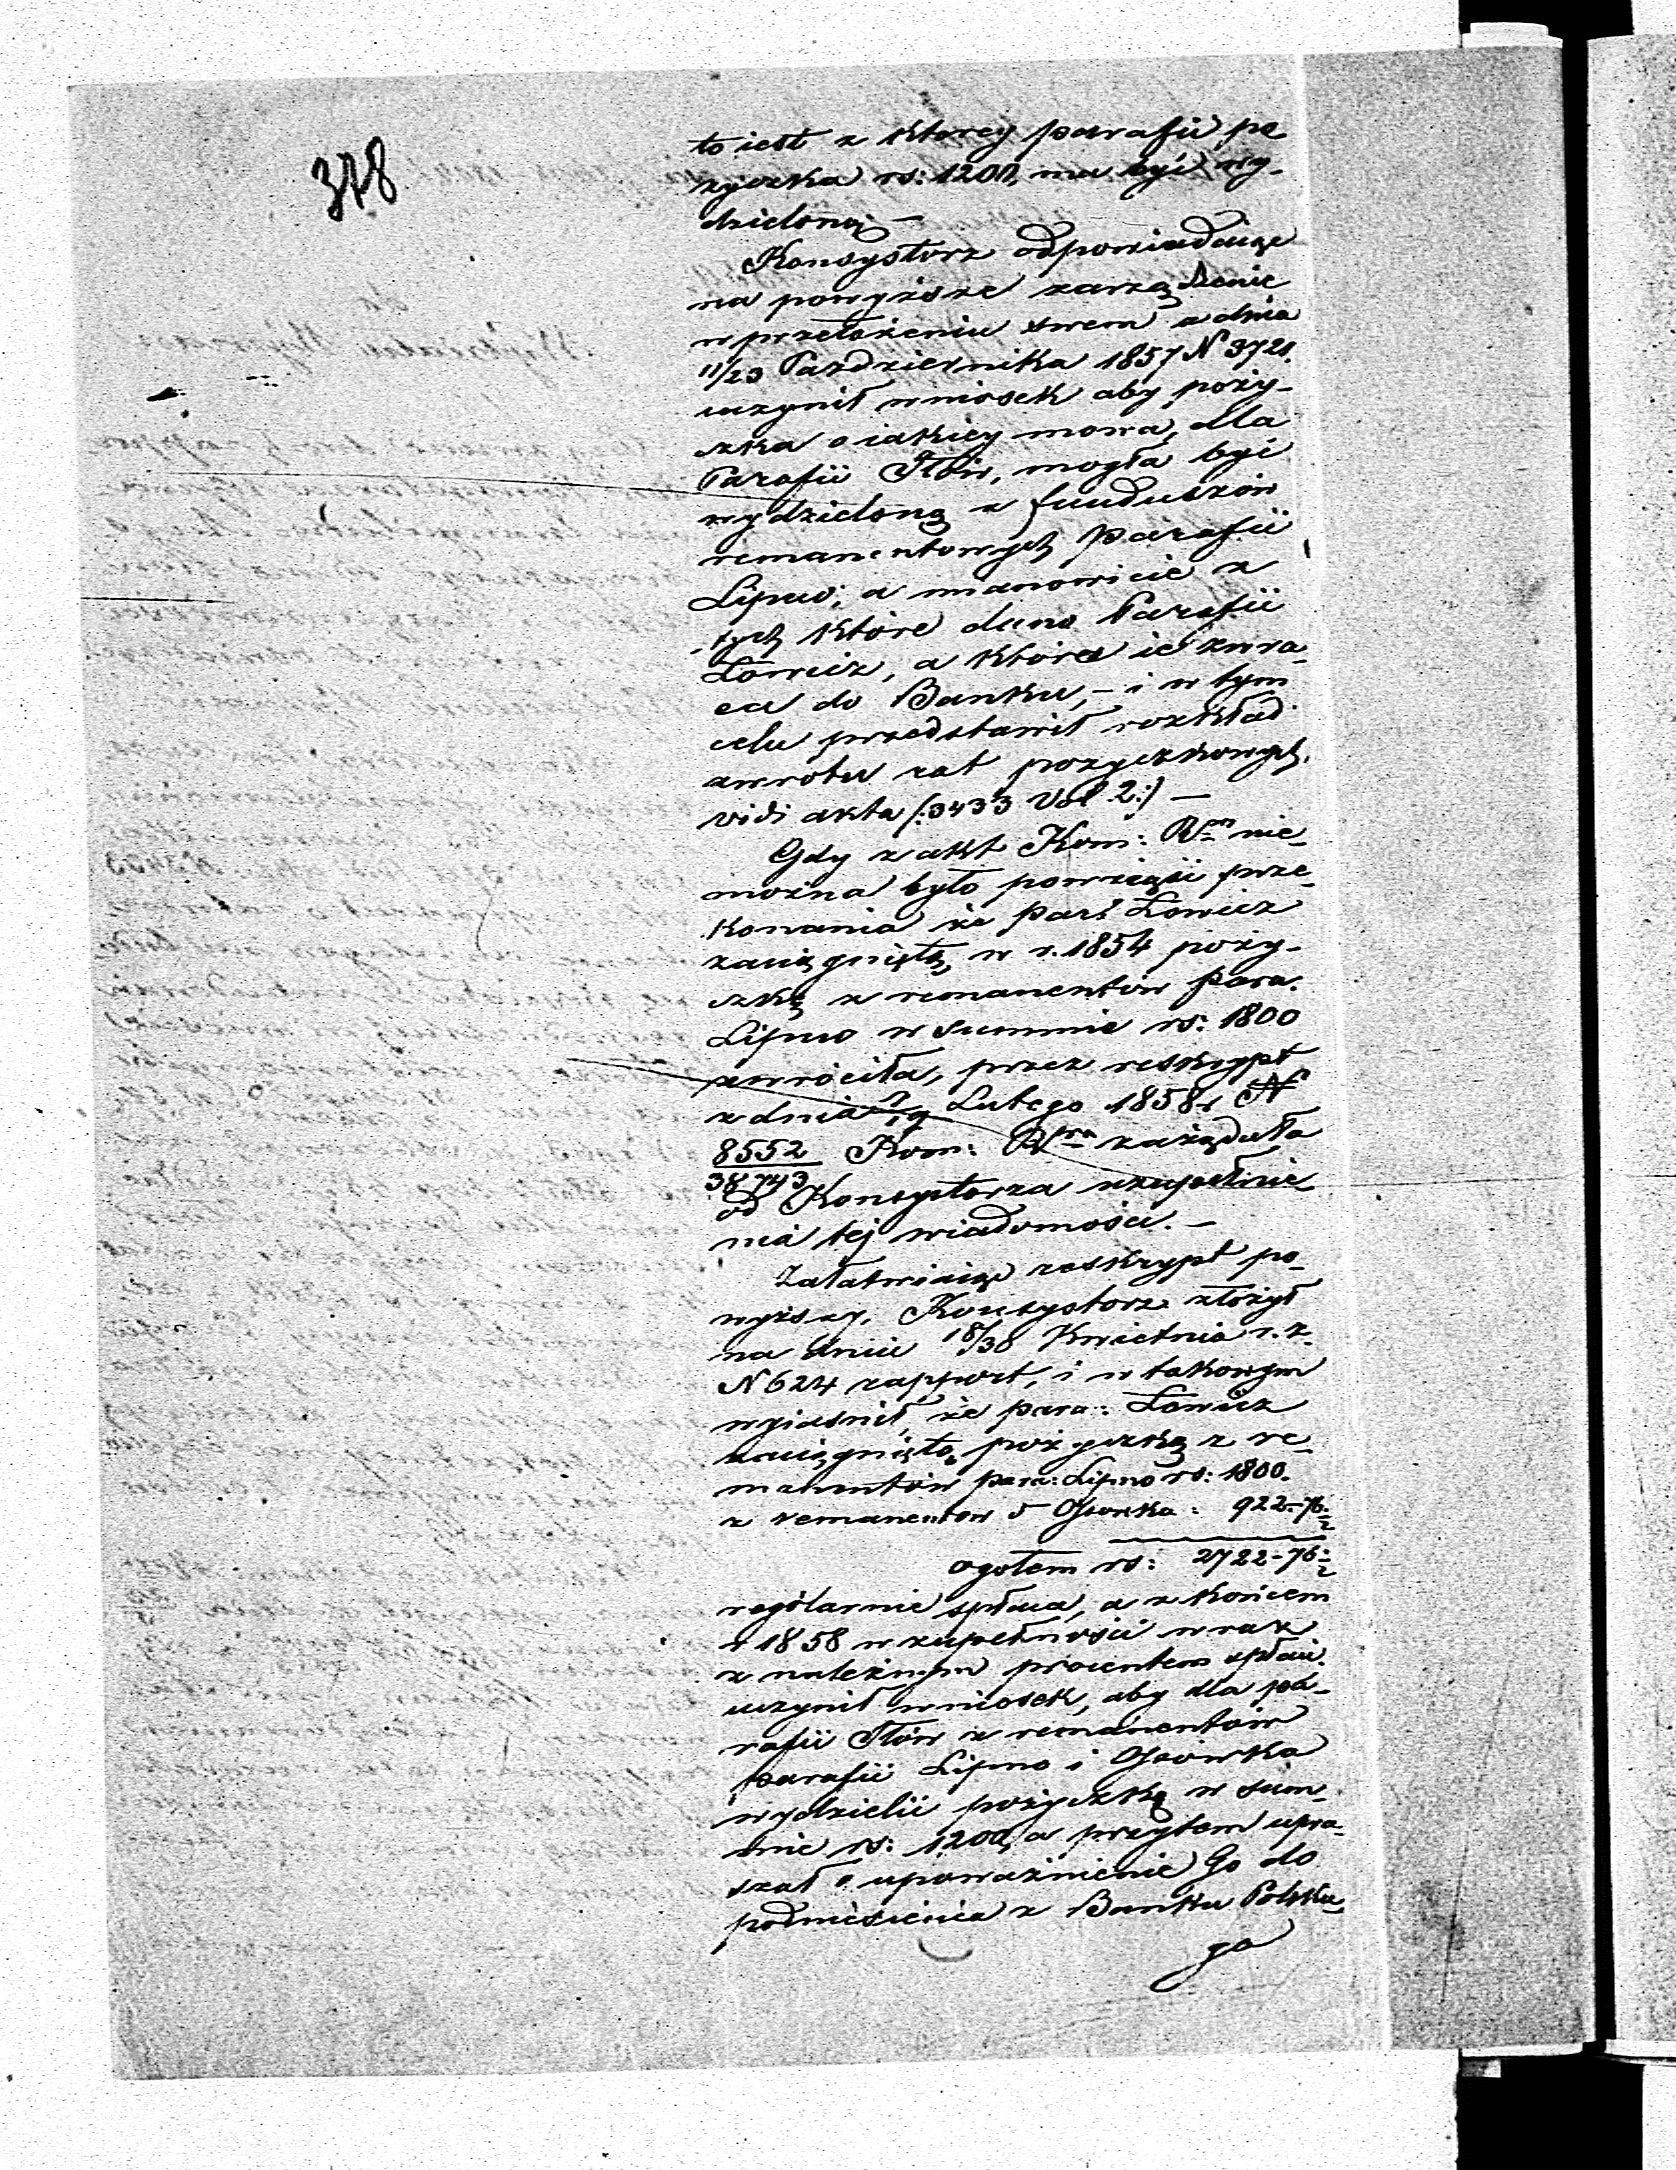 378
to iest z którey parafii po
życzka rs: 1200, ma być wy-
dzieloną. —
Konsystorz odpowiadaiąc
na powyższe zarządzenie
w przełożeniu swem z dnia
11/23 Października 1857 N 3721.
uczynił wniosek aby poży-
czka o iakiey mowa, dla
Parafii Iłów, mogła być
wydzieloną z funduszów
remanentowych Parafii
Lipno; a mianowicie z
tych które dano Parafii
Łowicz, a które ie zwra-
ca do Banku, — i w tym
celu przedstawił rozkład
zwrotu rat pożyczkowych,
vidi akta (:3433 Vol. 2:) —
Gdy z akt Kom: Rm nie-
można było powziąść prze-
konania że par: Łowicz
zaciągniętą w r. 1854 poży-
czkę z remanentów para.
Lipno w summie rs: 1800
zwróciła, przez reskrypt
z dnia Lutego 1858 r N
8552
38743
Kom: Rwa zażądała
od Konsystorza uzupełnie-
nia tej wiadomości. —
Załatwiaiąc reskrypt po-
wyższy, Konsystorz złożył
na dniu 18/30 Kwietnia r. z.
N 624 rapport, i w takowym
wyiaśnił, że para: Łowicz
zaciągniętą pożyczkę z re-
manentów para: Lipno rs: 1800.
z remanentow Osówka: 922-76 1/2
ogółem rs: 2722-76 1/2
rególarnie spłaca, a z końcem
r 1858 w zupełności wraz
z należnym procentem spłaci.
uczynił wniosek, aby dla pa-
rafii Iłów z remanentów
parafii Lipno i Osówka
wydzielić pożyczkę w sum-
mie rs: 1200, a przytem upra-
szał o upoważnienie Go do
podniesienia z Banku Polskie-
go